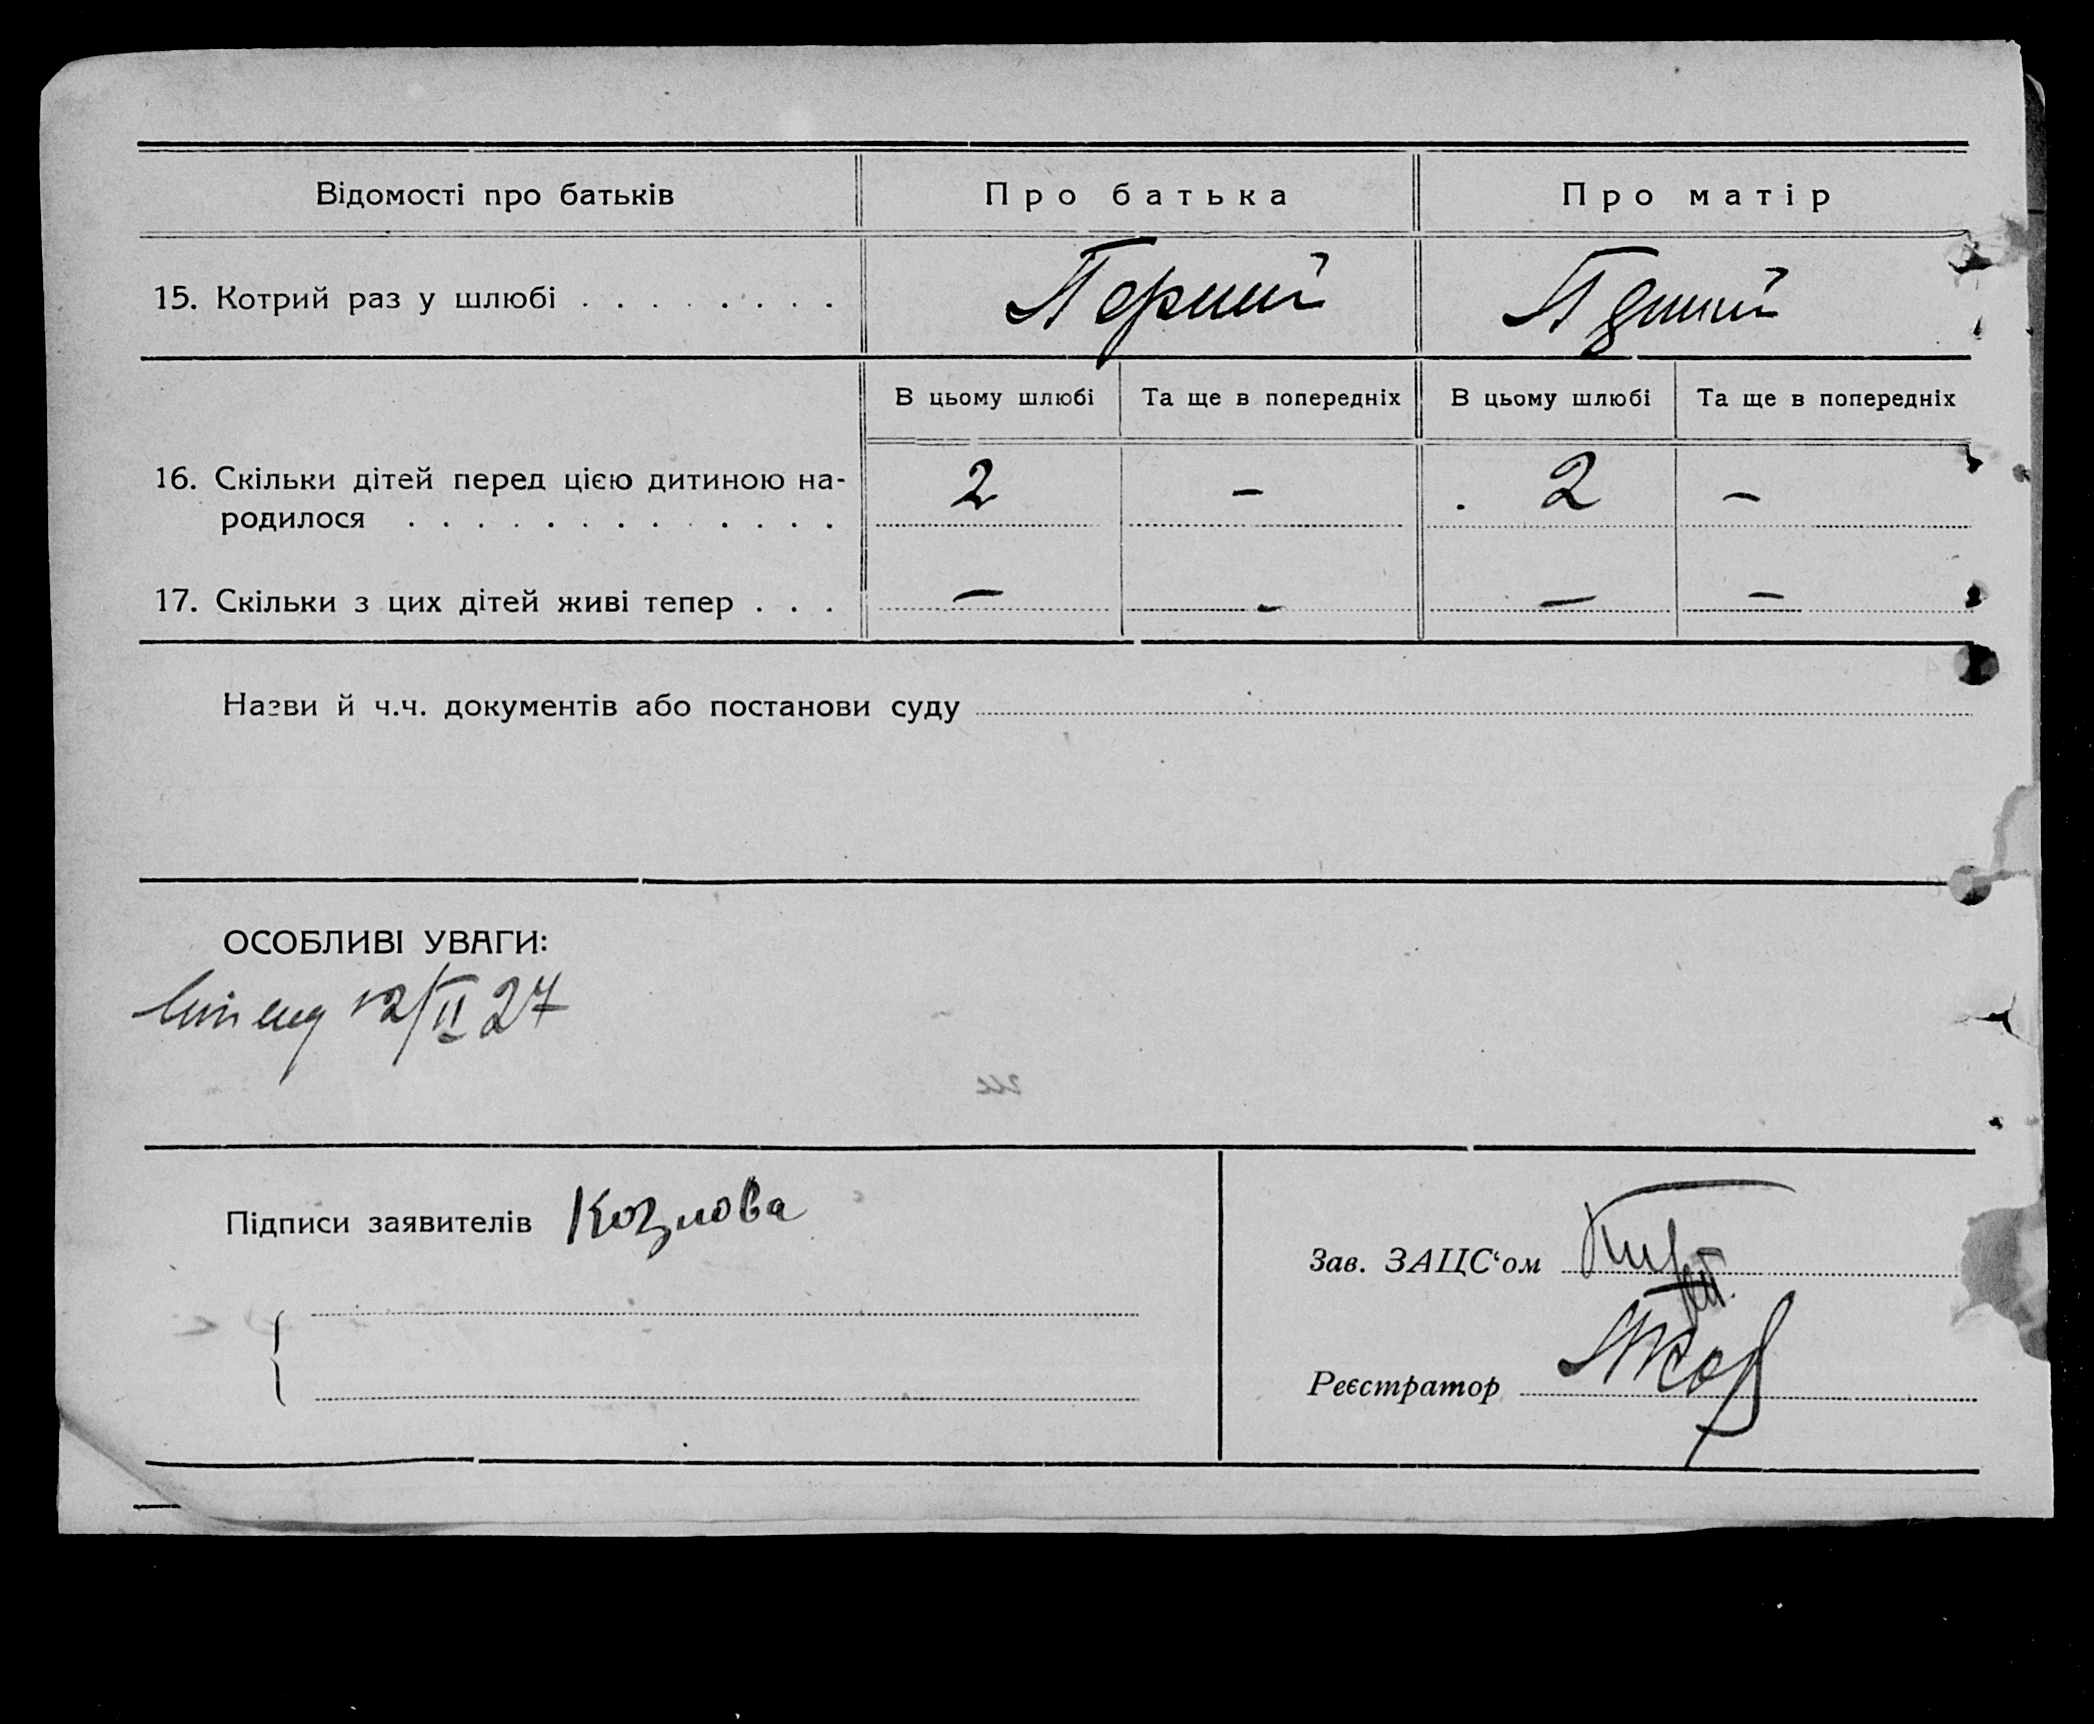 Відомості про батьків Про батька Про матір
15. Котрий раз у шлюбі . . . . . . . . Перший
В цьому шлюбі Та ще в попередніх В цьому шлюбі Та ще в попередніх
16. Скільки дітей перед цією дитиною на-
родилося . . . . . . . . . . . . . 2 – 2 –
17. Скільки з цих дітей живі тепер . . . – – – –
Назви й ч.ч. документів або постанови суду
ОСОБЛИВІ УВАГИ:
12/II 27
Підписи заявителів Козлова
Зав. ЗАЦС‘ом
Реєстратор